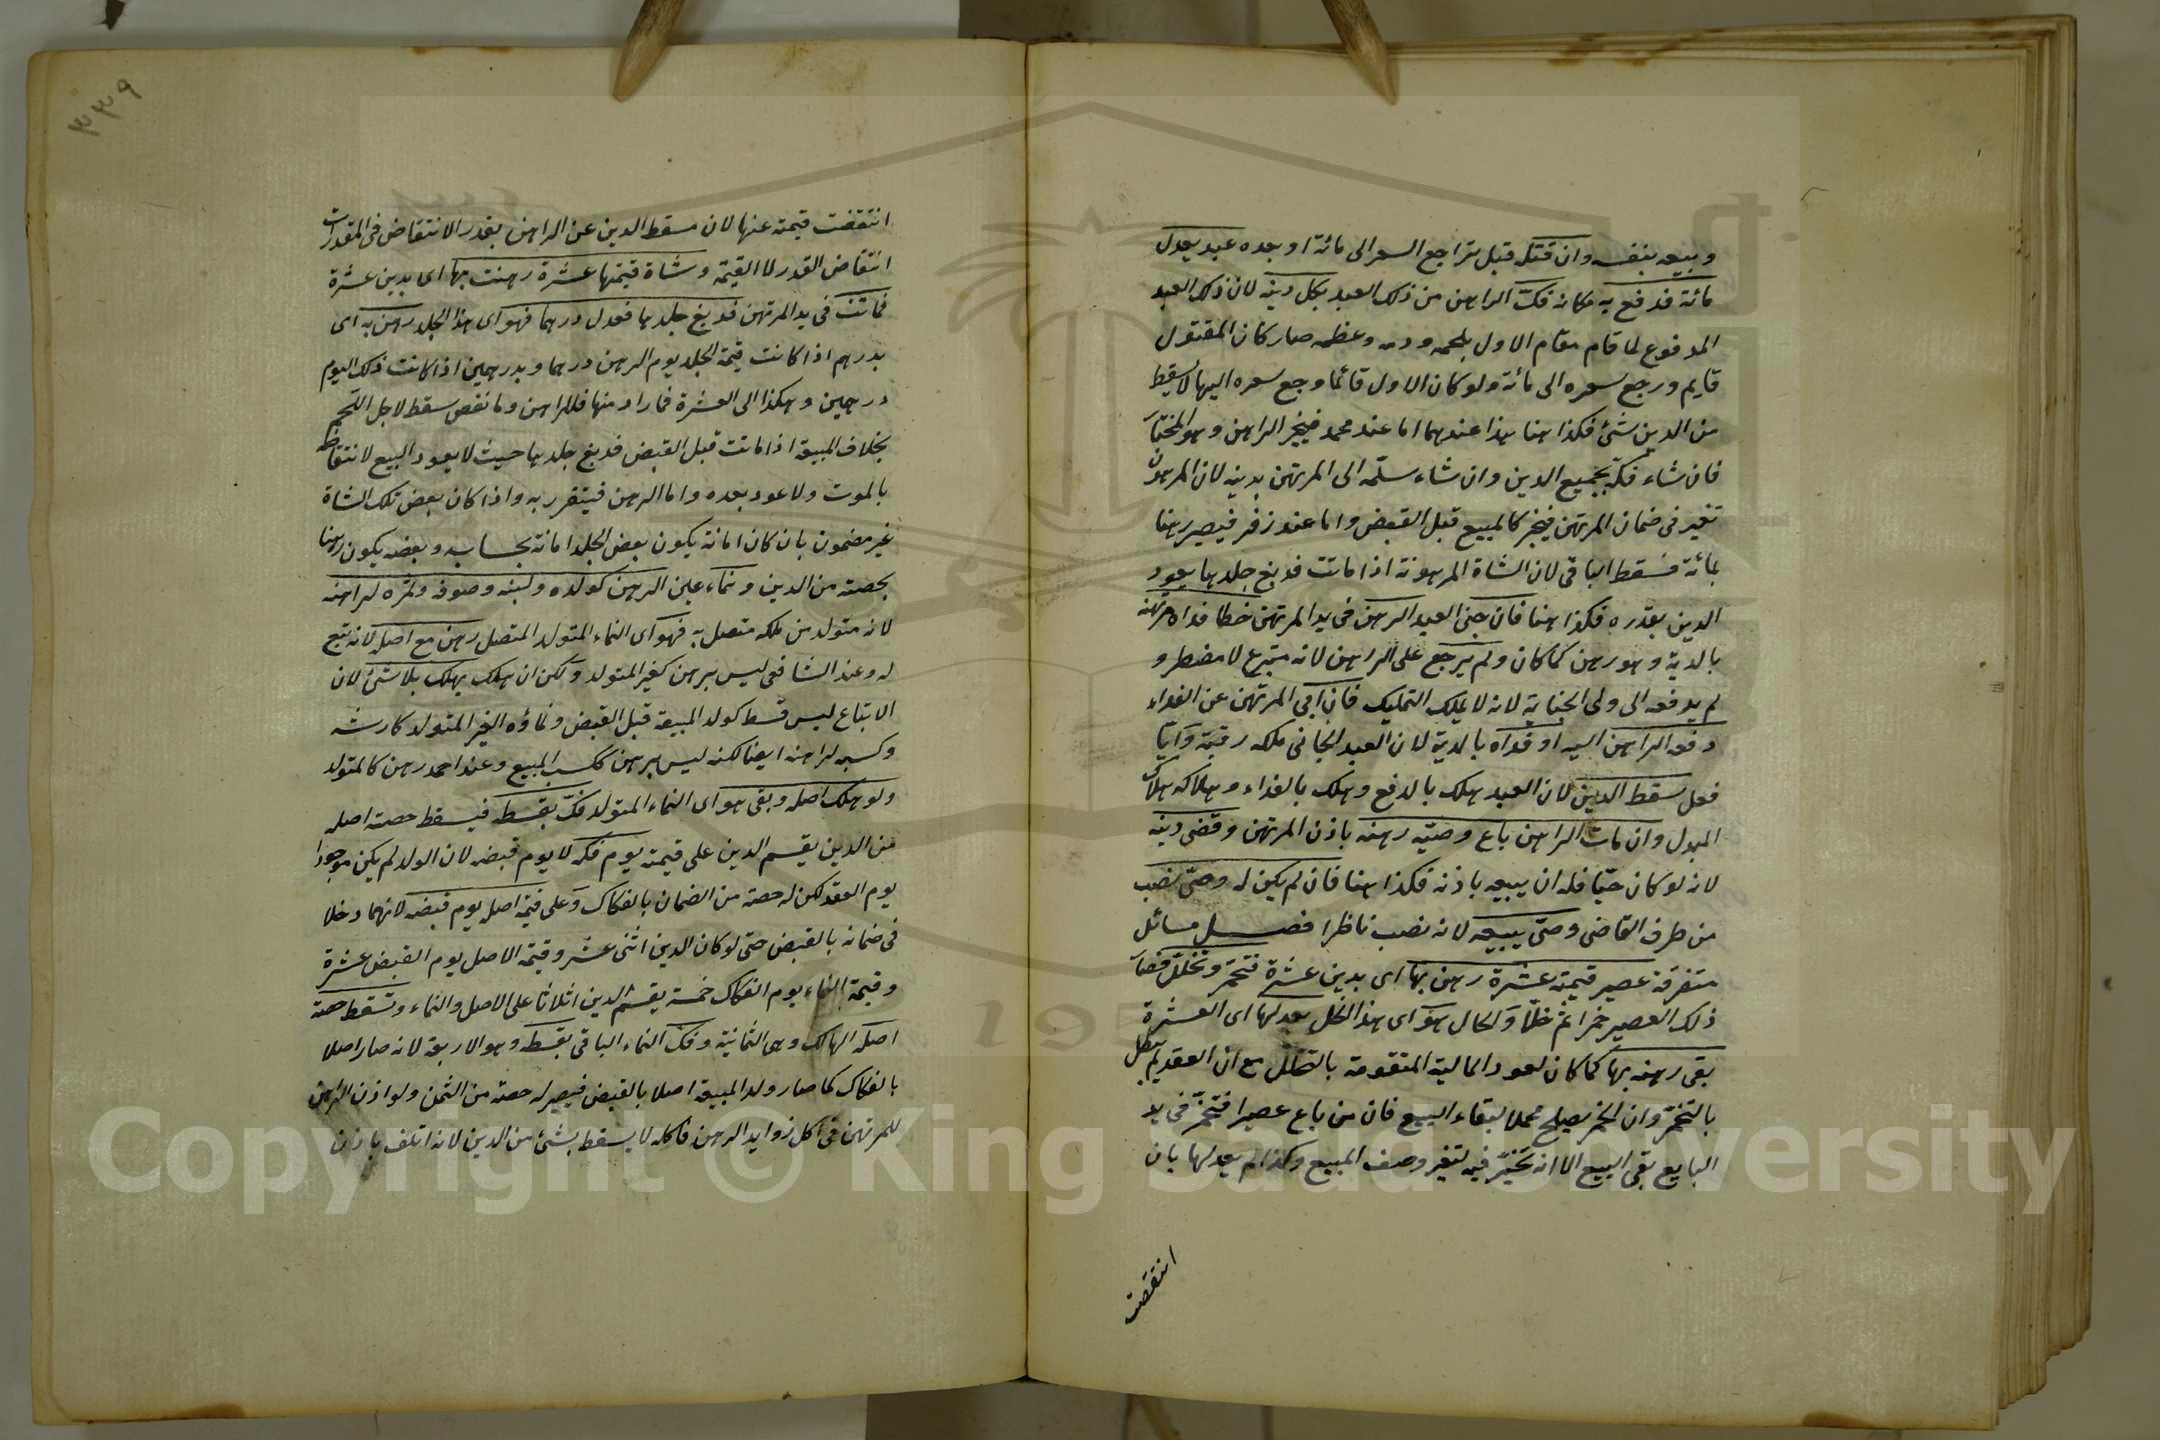 وبيعه بنفسه وان قتله قبل تراجع السعر الى مائة او بعده عبد يعدل
مائة فدفع به مكانه فكّ الراهن من ذلك العبد بكل دينه لان ذلك العبد
المدفوع لما قام مقام الاول بلحمه ودمه وعظمه صار كان المقتول
قايم ورجع سعره الى مائة ولو كان الاول قائما وجع سعره اليها لا يسقط
من الدين شئ فكذا هنا هذا عندهما اما عند محمد فيخير الراهن وهو المختار
فان شاء فكّه بجميع الدين وان شاء سلّمه الى المرتهن بدينه لان المرهون
تغير في ضمان المرتهن فيخير كالمبيع قبل القبض واما عند زفر فيصير رهنا
بمائة فسقط الباقى لان الشاة المرهونة اذا ماتت فدبغ جلدها يعود
الدين بقدره فكذا هنا فان جنى العبد الرهن في يد المرتهن خطا فداه مرتهنه
بالدية وهو رهن كما كان ولم يرجع على الراهن لانه متبرع لا مضطر و
لم يدفعه الى ولى الجناية لانه لا يملك التمليك فان ابى المرتهن عن الفداء
دفعه الراهن اليه او فداه بالدية لان العبد الجانى ملكه رقبة وايّا
فعل سقط الدين لان العبد هلك بالدفع وهلك بالفداء وهلاكه هلاك
المبدل وان مات الراهن باع وصيّه رهنه باذن المرتهن وقضى دينه
لانه لو كان حيّا فله ان يبيعه باذنه فكذا هنا فان لم يكن له وصىّ نصب
من طرف القاضى وصىّ يبيعه لانه نصب ناظرا فصل مسائل
متفرقة عصير قيمته عشرة رهن بها اى بدين عشرة فتخمّر وتخلّل فصار
ذلك العصير خمرا ثم خلّا والحال هو اى هذا الخل يعدلها اى العشرة
بقى رهنه بها كما كان لعود المالية المتقومة بالتخلل مع ان العقد لم يبطل
بالتخمّر وان الخمر يصلح محلا لبقاء البيع فان من باع عصيرا فتخمّر في يد
البايع بقى البيع الا انه يخيّر فيه لتغير وصف المبيع وكذا لم يعدلها بان
انتقصت
٣٣٩
انتقصت قيمته عنها لان مسقط الدين عن الراهن بقدر الانتقاض في المقدرات
انتقاض القدر لا القيمة وشاة قيمتها عشرة رهنت بها اى بدين عشرة
فماتت في يد المرتهن فدبغ جلدها فعدل درهما فهو اى هذا الجلد رهن به اى
بدرهم اذا كانت قيمة الجلد يوم الرهن درهما وبدرهمين اذا كانت ذلك اليوم
درهمين وهكذا الى العشرة فما زاد منها فللراهن وما نقص سقط لاجل اللحم
بخلاف المبيعة اذا ماتت قبل القبض فدبغ جلدها حيث لا يعود البيع لانتقاضه
بالموت ولا عود بعده واما الرهن فيتقرر به واذا كان بعض تلك الشاة
غير مضمون بان كان امانة يكون بعض الجلد امانة بحسابه وبعضه يكون رهنا
بحصته من الدين ونماء عين الرهن كولده ولبنه وصوفه وثمره لراهنه
لانه متولد من ملكه متصل به فهو اى النماء المتولد المتصل رهن مع اصله لانه تبع
له وعند الشافعى ليس برهن كغير المتولد ولكن ان هلك يهلك بلا شئ لان
الاتباع ليس قسط كولد المبيعة قبل القبض ونماؤه الغير المتولد كارشه
وكسبه لراهنه ايضا لكنه ليس برهن ككسب المبيع وعند احمد رهن كالمتولد
ولو هلك اصله وبقى هو اى النماء المتولد فكّ بقسطه فيسقط حصة اصله
من الدين يقسم الدين على قيمته يوم فكّه لا يوم قبضه لان الولد لم يكن موجودا
يوم العقد لكن له حصة من الضمان بالفكاك وعلى قيمة اصله يوم قبضه لانهما دخلا
في ضمانه بالقبض حتى لو كان الدين اثنى عشر وقيمة الاصل يوم القبض عشرة
وقيمة النماء يوم الفكاك خمسة يقسم الدين اثلاثا على الاصل والنماء وتسقط حصة
اصله الهالك وهى الثمانية وفك النماء الباقى بقسطه وهو الاربعة لانه صار اصلا
بالفكاك كما صار ولد المبيعة اصلا بالقبض فيصير له حصة من الثمن ولو اذن الراهن
للمرتهن في اكل زوايد الرهن فاكله لا يسقط بشئ من الدين لانه اتلف باذن
Copyright © King Saud University
1957